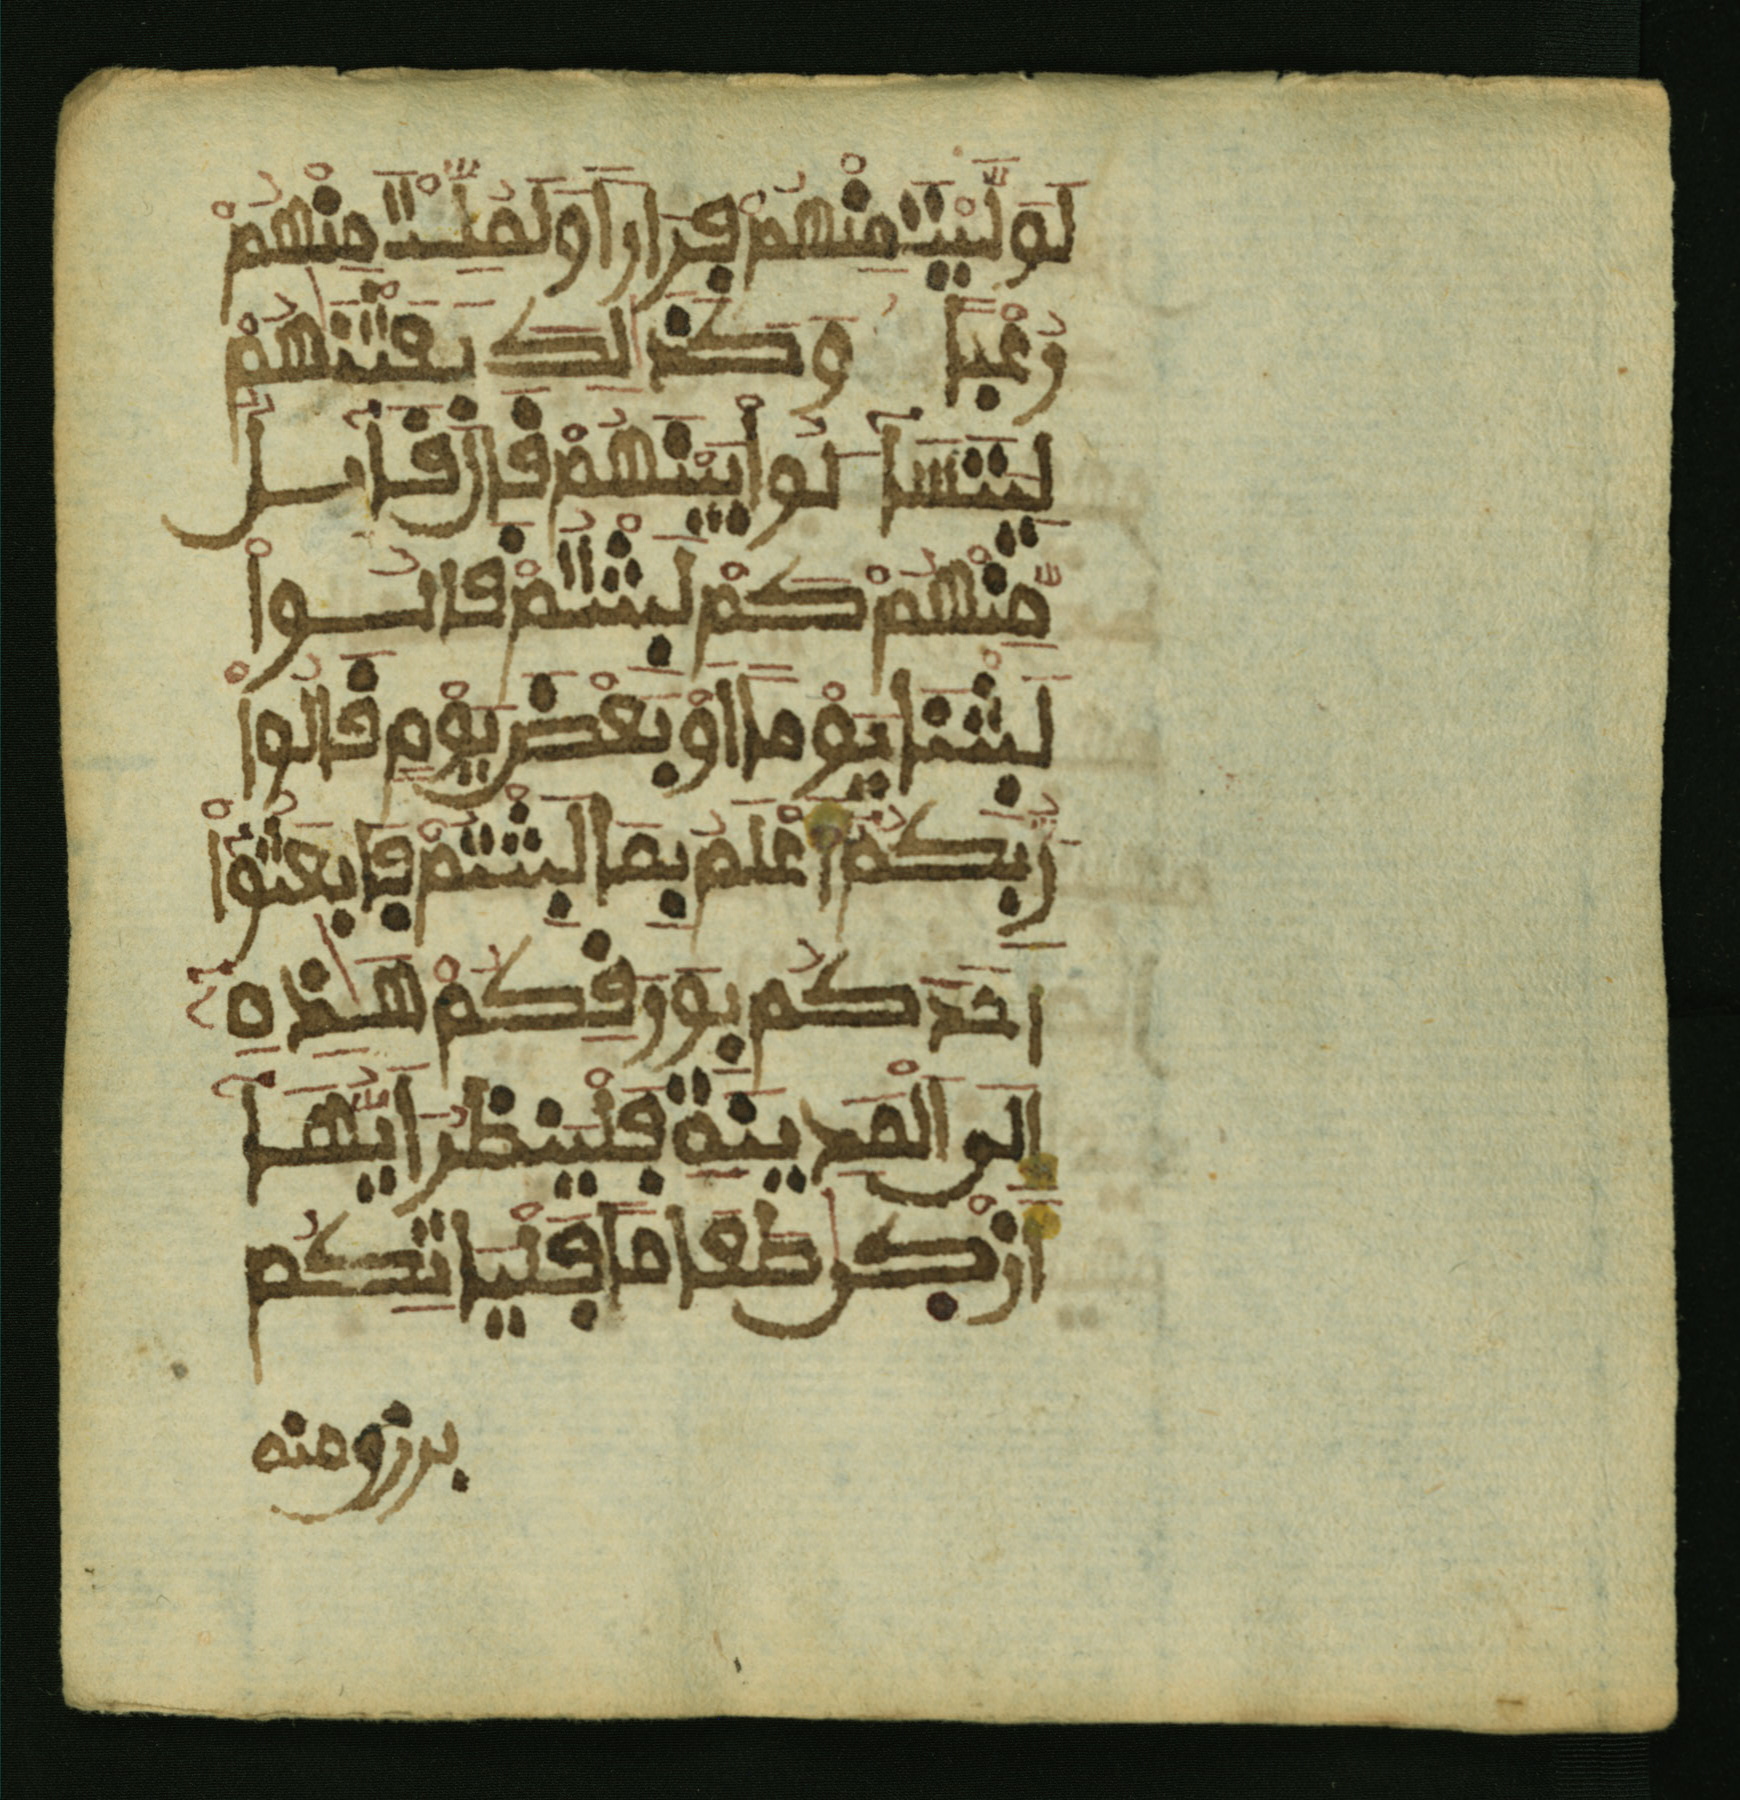 لَوَلَّيْتَ مِنْهُمْ فِرَارًا وَلَمُلِّئْتَ مِنْهُمْ
رُعْبًا وَكَذَٰلِكَ بَعَثْنَٰهُمْ
لِيَتَسَآءَلُوا بَيْنَهُمْ قَالَ قَآئِلٌ
مِّنْهُمْ كَمْ لَبِثْتُمْ قَالُوا
لَبِثْنَا يَوْمًا اَوْ بَعْضَ يَوْمٍ قَالُوا
رَبُّكُمْ أَعْلَمُ بِمَا لَبِثْتُمْ فَابْعَثُوٓا
اَحَدَكُم بِوَرِقِكُمْ هَٰذِهِٓ
إِلَى الْمَدِينَةِ فَلْيَنْظُرَ اَيُّهَآ
أَزْكَىٰ طَعَامًا فَلْيَاتِكُم
برزق منه